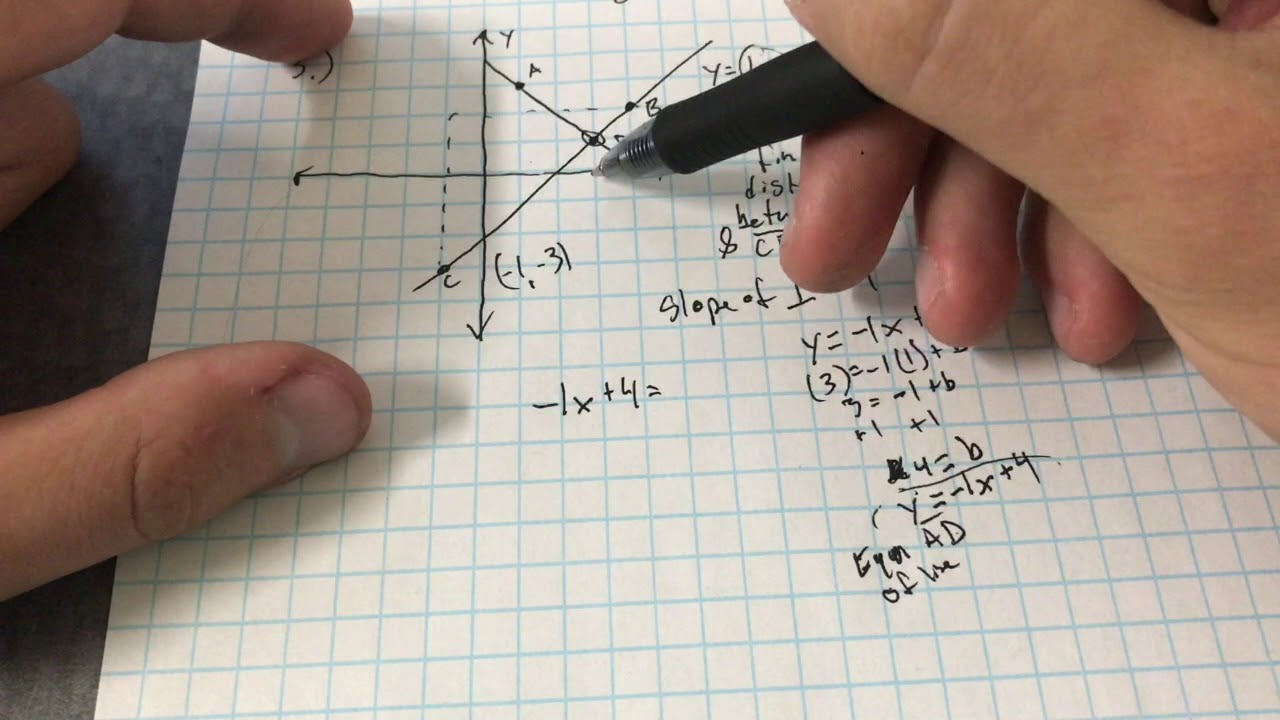 3.)
Y
A
B
y = (1
Fin
dist
betw
& C
C
(-1, -3)
Slope of ⊥
y = -1x +
(3) = -1(1) +
3 = -1 + b
+1 +1
4 = b
y = -1x + 4
Eqn AD
of line
-1x + 4 =